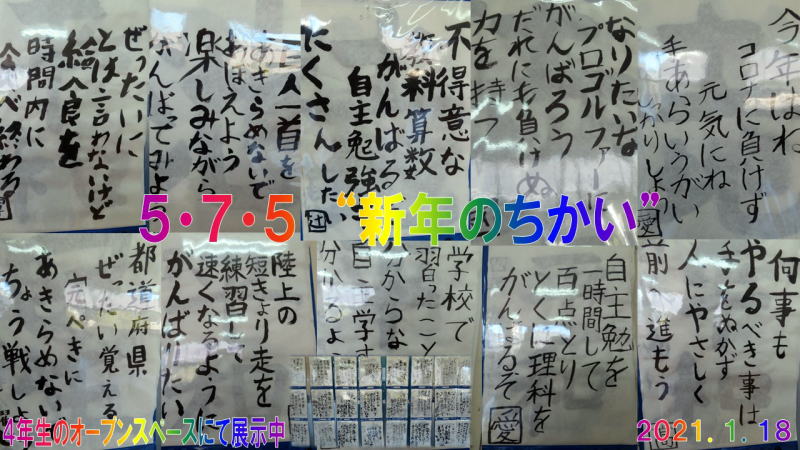 今年はね
コロナに負けず
元気にね
手あらいうがい
しっかりしよう
愛
なりたいな
プロゴルファーに
がんばろう
だれにも負けぬ
力を持つ
不得意な
教科算数
がんばる
自主勉強
たくさんしたい
百人一首を
あきらめないで
おぼえよう
楽しみながら
がんばってみよう
ぜったいに
とは言わないけど
給食を
時間内に
食べ終わろう
5・7・5 “新年のちかい”
何事も
やるべき事は
手をぬかず
人にやさしく
前へ進もう
自主勉を
一時間して
百点とり
とくに理科を
がんばるぞ
愛
学校で
習ったこと
分からな
自主学
分かるよ
陸上の
短きょり走を
練習して
速くなるように
がんばりたい
都道府県
ぜったい覚える
完ぺきに
あきらめない
ちょう戦し
4年生のオープンスペースにて展示中
2021.1.18